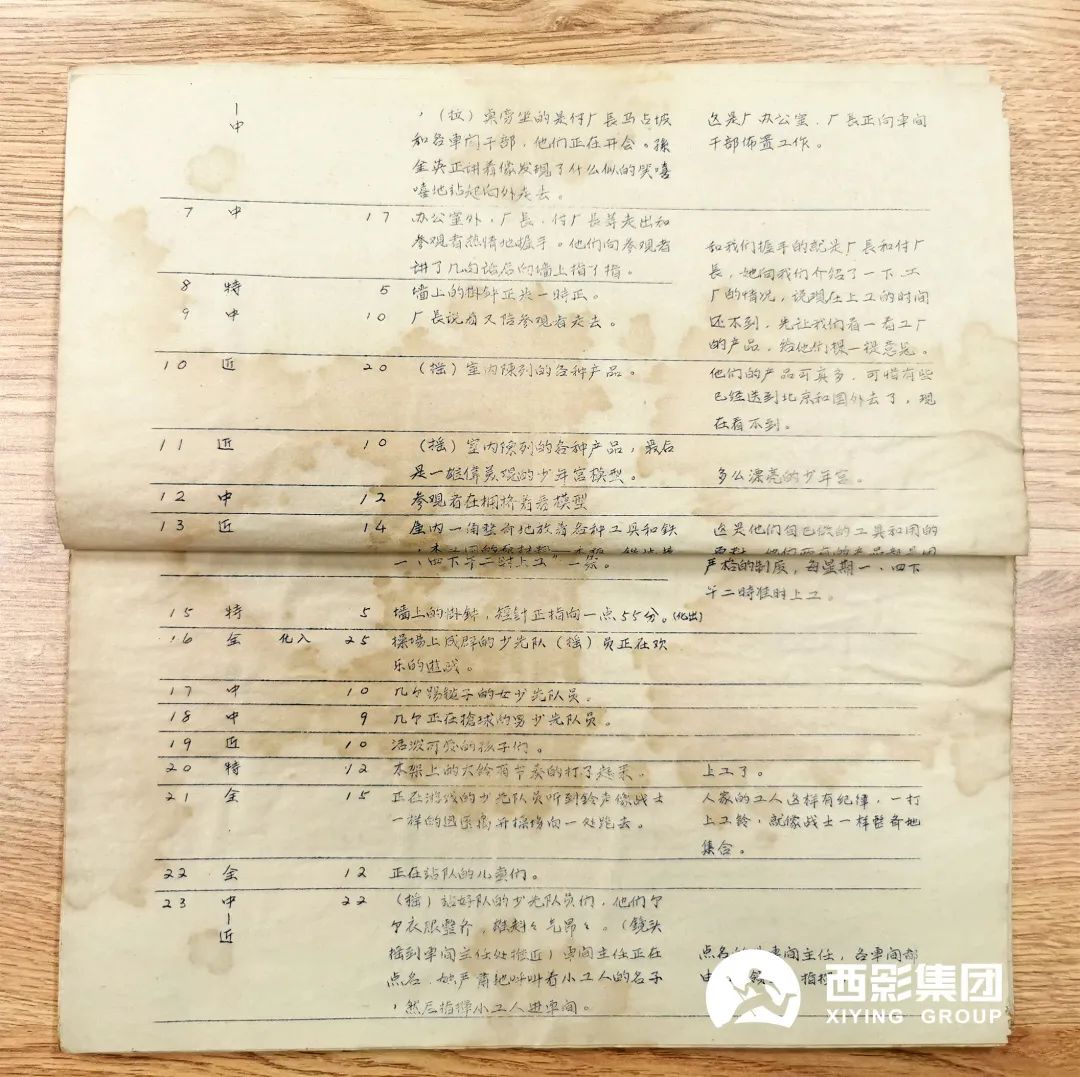 丨
中
，（拉）桌旁坐的是付厂長马占坡 这是厂办公室，厂長正向車间
和各車间干部，他们正在开会。孫 干部佈置工作。
金英正讲着像发现了什么似的笑嘻
嘻地站起向外走去。
7 中 17 办公室外，厂長、付厂長等走出和
参观者热情地握手。他们向参观者 和我们握手的就是厂長和付厂
讲了几句话后向墙上指了指。 長，她向我们介绍了一下工
8 特 5 墙上的掛钟正是一時正。 厂的情况，说现在上工的时间
9 中 10 厂長说着又陪参观者走去。 还不到，先让我们看一看工厂
的产品，给他们提一提意见。
10 近 20 （摇）室内陳列的各种产品。 他们的产品可真多，可惜有些
已经送到北京和国外去了，现
在看不到。
11 近 10 （摇）室内陳列的各种产品，最后
是一雄偉美观的少年宫模型。 多么漂亮的少年宫。
12 中 12 参观者在拥挤着看模型
13 近 14 屋内一角整齐地放着各种工具和鉄 这是他们自己做的工具和用的
一、四下午二時上工”一条。 严格的制度，每星期一、四下
午二時准时上工。
15 特 5 墙上的掛钟，短針正指向一点55分。（化出）
16 全 化入 25 操場上成群的少先队（摇）员正在欢
乐的遊戏。
17 中 10 几个踢毽子的女少先队员。
18 中 9 几个正在搶球的男少先队员。
19 近 10 活泼可爱的孩子们。
20 特 12 木架上的大铃有节奏的打了起来。 上工了。
21 全 15 正在游戏的少先队员听到铃声像战士 人家的工人这样有纪律，一打
一样的迅速离开操場向一处跑去。 上工铃，就像战士一样整齐地
集合。
22 全 12 正在站队的儿童们。
23 中 22 （摇）站好队的少先队员们，他们个
丨 个衣服整齐，雄赳々气昂々。（鏡头
近 摇到車间主任处推近）車间主任正在 点名的 車间主任，各車间都
点名，她严肃地呼叫着小工人的名子
，然后指揮小工人进車间。
西影集团
XIYING GROUP